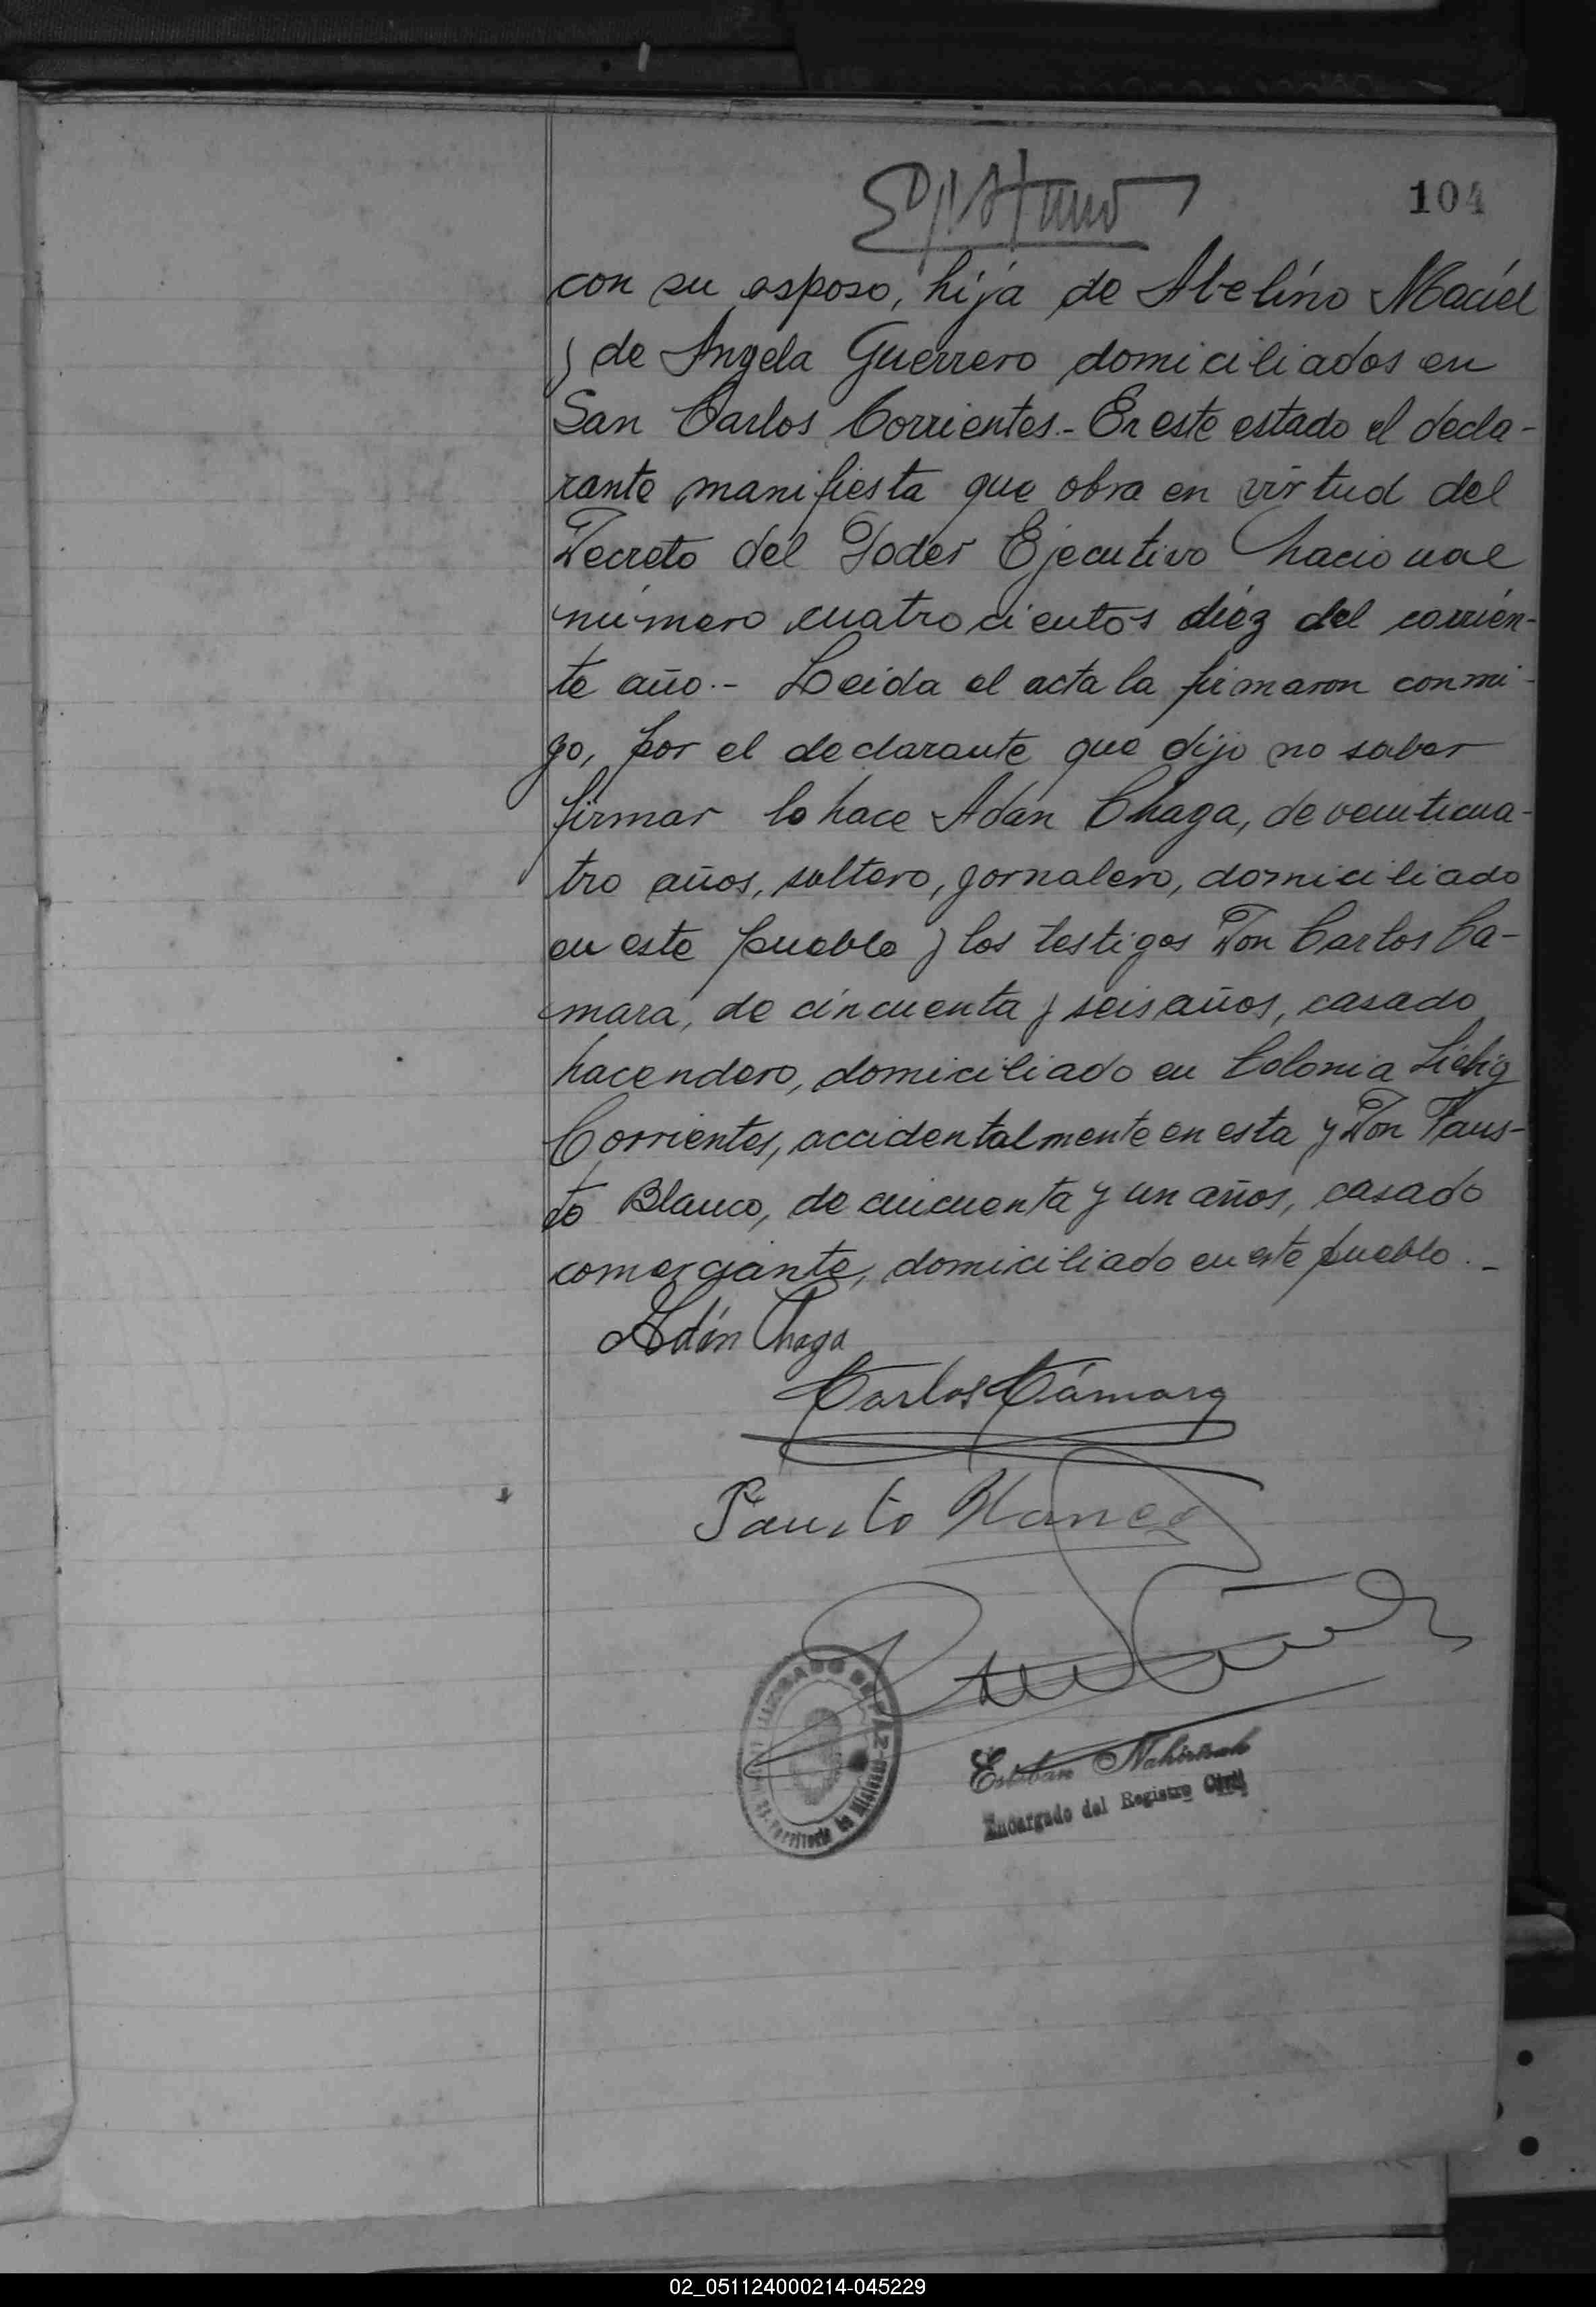 104
con su esposo, hija de Abelino Maciel
y de Angela Guerrero domiciliados en
San Carlos Corrientes.- En este estado el decla-
rante manifiesta que obra en virtud del
Decreto del Poder Ejecutivo Nacional
número cuatrocientos diez del corrien-
te año.- Leida el acta la firmaron conmi-
go, por el declarante que dijo no saber
firmar lo hace Adán Chaga, de veinticua-
tro años, soltero, jornalero, domiciliado
en este pueblo y los testigos Don Carlos Ca-
mara, de cincuenta y seis años, casado
hacendero, domiciliado en Colonia Liebig
Corrientes, accidentalmente en esta y Don Faus-
to Blanco, de cincuenta y un años, casado
comerciante, domiciliado en este pueblo.-
Adán Chaga
Carlos Cámara
Fausto Blanco
JUZGADO DE PAZ
Territorio de Misiones
Esteban
Encargado del Registro Civil
02_051124000214-045229